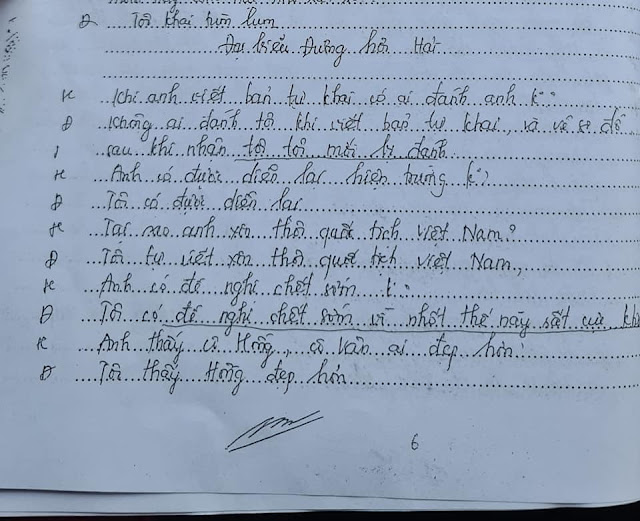 Đ Tôi khai lung tung
Đại biểu Dương hỏi Hải
H Khi anh viết bản tự khai có ai đánh anh k?
Đ Không ai đánh tôi khi viết bản tự khai, và vẽ sơ đồ
sau khi nhận tội tôi mới bị đánh
H Anh có được diễn lại hiện trường k?
Đ Tôi có được diễn lại
H Tại sao anh xin thôi quốc tịch Việt Nam?
Đ Tôi tự viết xin thôi quốc tịch Việt Nam,
H Anh có đề nghị chết sớm k?
Đ Tôi có đề nghị chết sớm vì nhốt thế này rất cực khổ
H Anh thấy cô Hồng, cô Vân ai đẹp hơn?
Đ Tôi thấy Hồng đẹp hơn
6